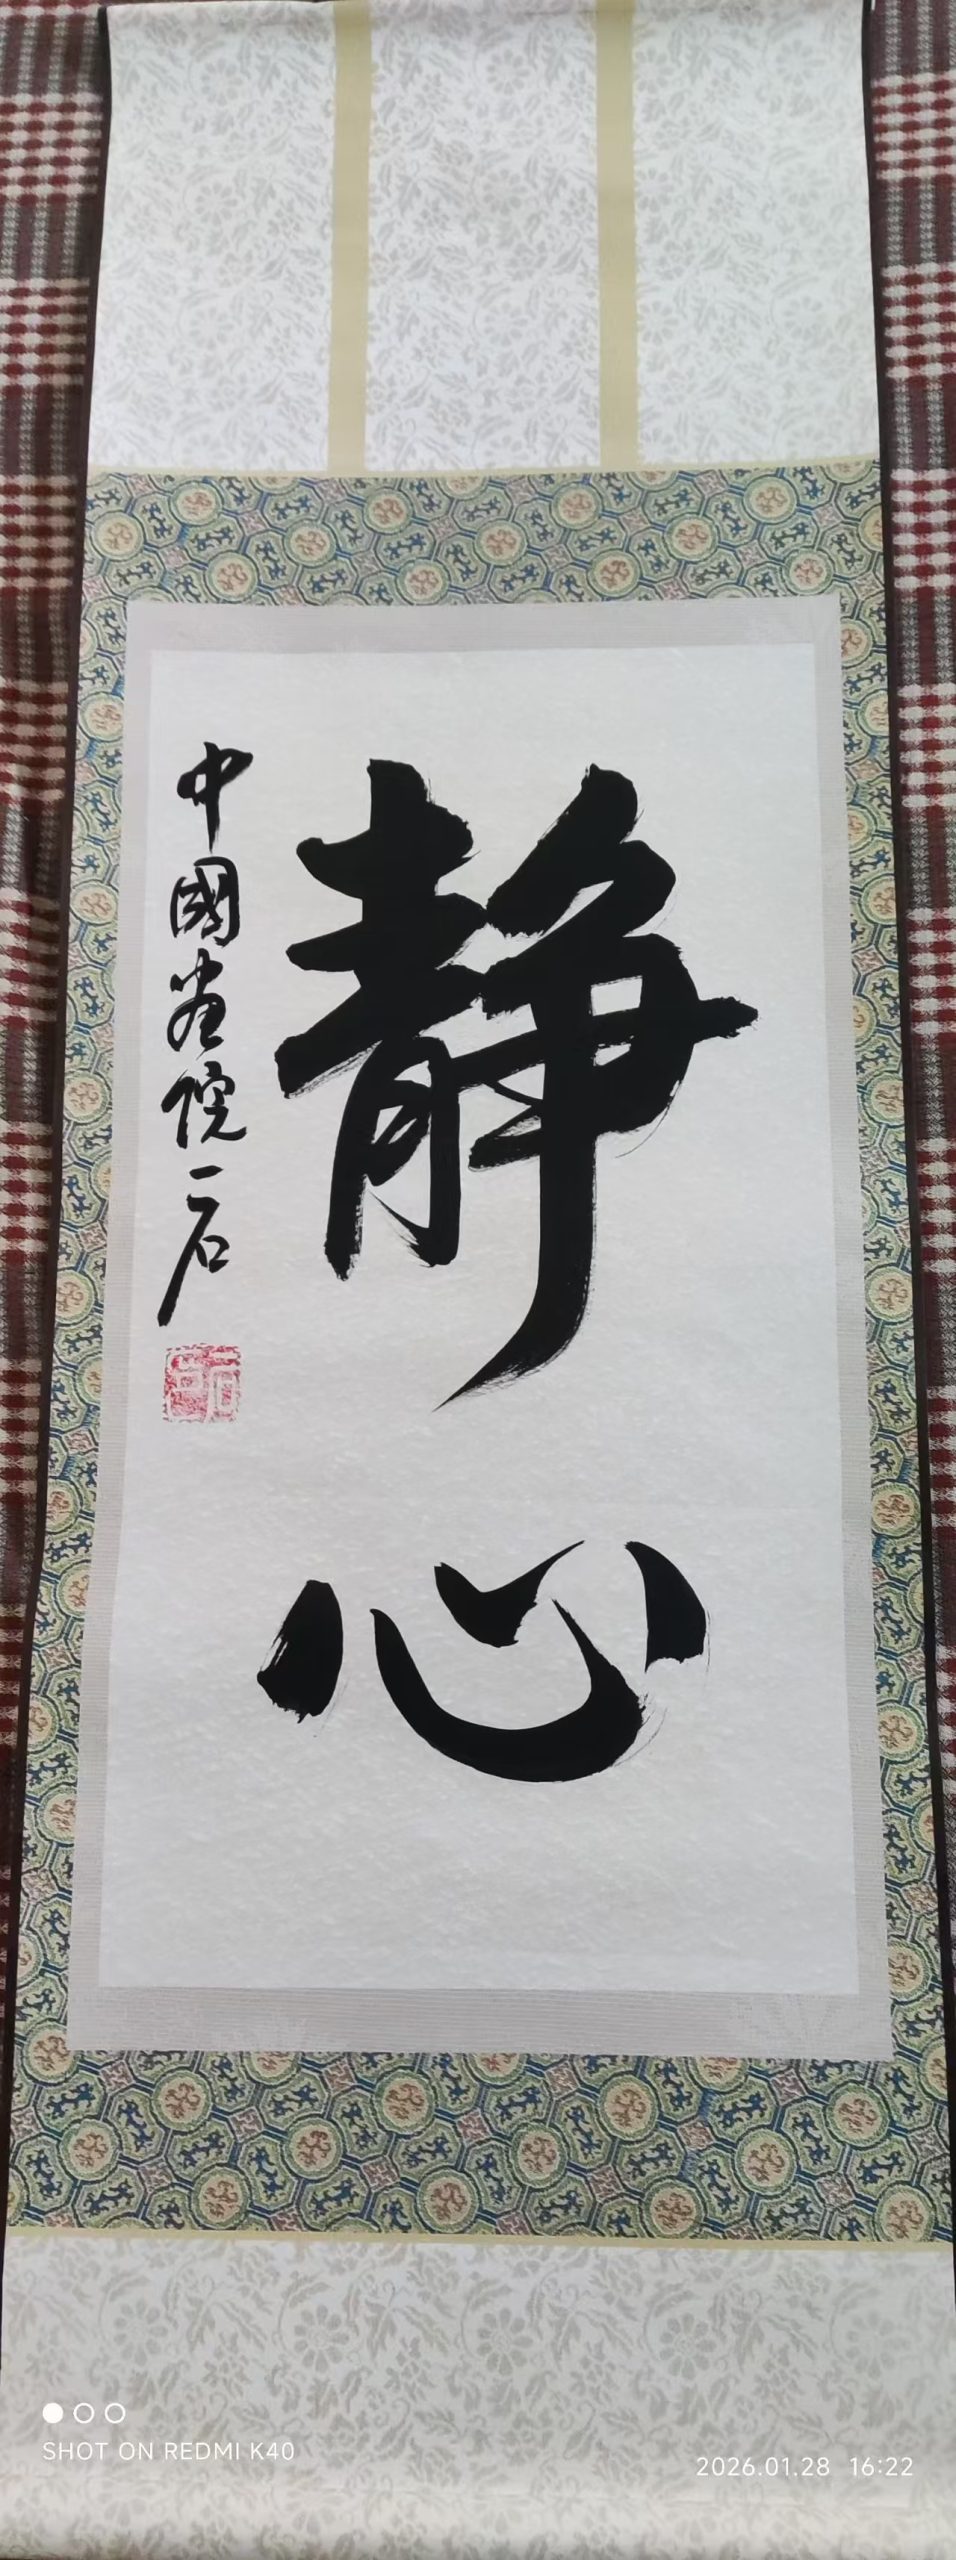 靜心
中國畫院一石
SHOT ON REDMI K40
2026.01.28 16:22